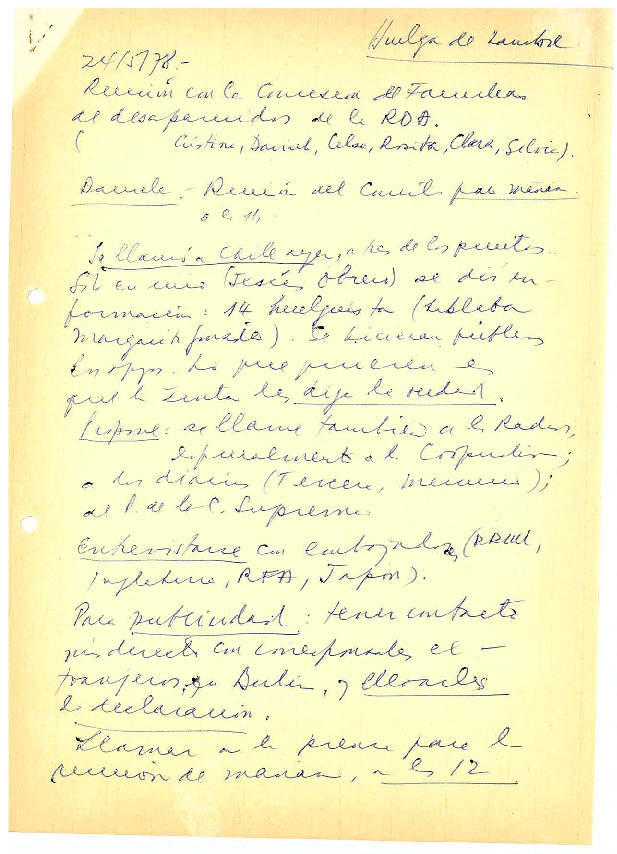 Huelga de hambre
24/5/78.-
Reunión con la Comisión de Familias
de desaparecidos de la RDA.
( Cristina, Daniel, Celsa, Rosita, Clara, Silvia).
Daniela.- Reunión del Comité para mañana
a las 11,
Se llamó a Chile ayer, a tres de los puntos.
Sólo en uno (Jesús Obrero) se dio in-
formación: 14 huelguistas (hablaba
Margarita). Se hicieron públicos
Lo que quieren es
que la Junta les diga la verdad.
Propone: se llame también a la Radios,
especialmente a la Cooperativa;
a los diarios (Tercera, Mercurio);
al P. de la C. Suprema
Entrevistarse con embajadores (RRUU,
Inglaterra, RFA, Japón).
Para publicidad: tener contacto
más directo con corresponsales ex-
tranjeros, en Berlín, y llevarles
la declaración.
Llamar a la prensa para la
reunión de mañana, a las 12